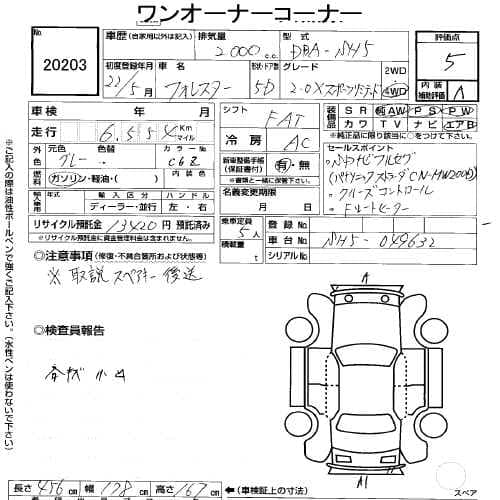 ワンオーナーコーナー
No
20203
車歴 (自家用以外は記入) 排気量 2000 c.c. 型式 DBA-SH5 評価点 5
初度登録年月 22/5月 フォレスター 形状・ドア数 5D グレード 2.0X スポーツリミテッド 2WD 4WD 内装補助評価 A
車検 年 月 シフト FAT 装備品 SR 純AW PS PW
カワ TV ナビ エアB
※純正品に限り該当に○をつけて下さい。
走行 6,554 Km マイル 冷房 AC
外色 元色 グレー 色替 カラーNo C6Z
セールスポイント
・パナソニックストラーダ CN-HW200D
・クルーズコントロール
・シートヒーター
燃料 ガソリン・軽油・( ) 内装色 新車整備手帳 (保証書付) 有・無
※書類と一緒に保管して下さい。
輸入車用 輸入区分 ディーラー・並行 ハンドル 左・右 名義変更期限 月 日
リサイクル預託金 13420 円 預託済み
※リサイクル預託金に資金管理料金は含まれません。
乗車定員 5人 積載量 t 登録No
車台No SH5-049632
シリアルNo
◎注意事項 (修復・不具合箇所および状態等)
※ 取説 スペアキー 後送
◎検査員報告
小凹
長さ 456 cm 幅 178 cm 高さ 167 cm ←(車検証上の寸法)
A
A1
スペア
※ご記入の際は油性ボールペンで強くご記入下さい。(水性ペンは使わないで下さい)